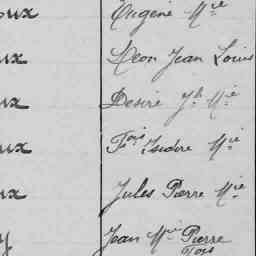 oux Eugène Mie
ux Léon Jean Louis
ux Désiré Jh Mie
ux Fois Isidore Mie
ux Jules Pierre Mie
y Jean Mie Pierre
Fois